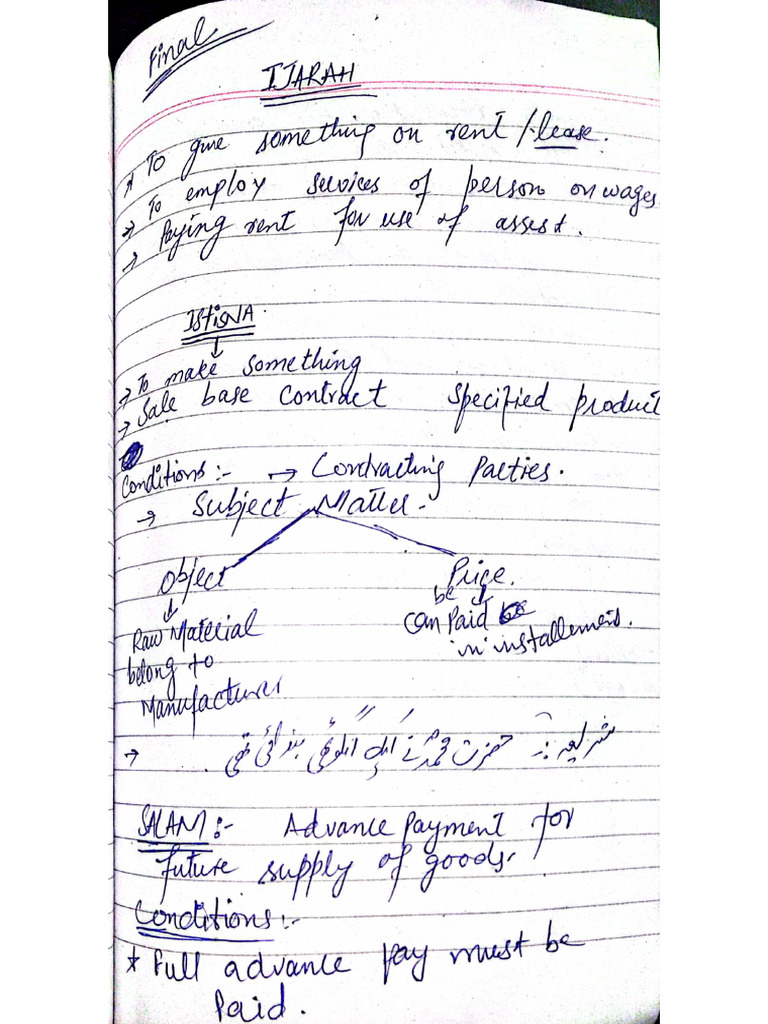 Final
IJARAH
→ To give something on rent / lease.
→ To employ services of person on wages
→ Paying rent for use of assest.
IstisNA
→ To make something
→ Sale base contract specified product
Conditions :- → Contracting Parties.
→ Subject Matter -
Object
Price.
Raw Material
belong to
Manufacturer
be
can Paid
in installements.
→ شریعہ :- حضرت محمدؐ نے ایک انگوٹھی بنوائی تھی
SALAM :- Advance Payment for
future supply of goods.
Conditions :-
* Full advance pay must be
Paid.